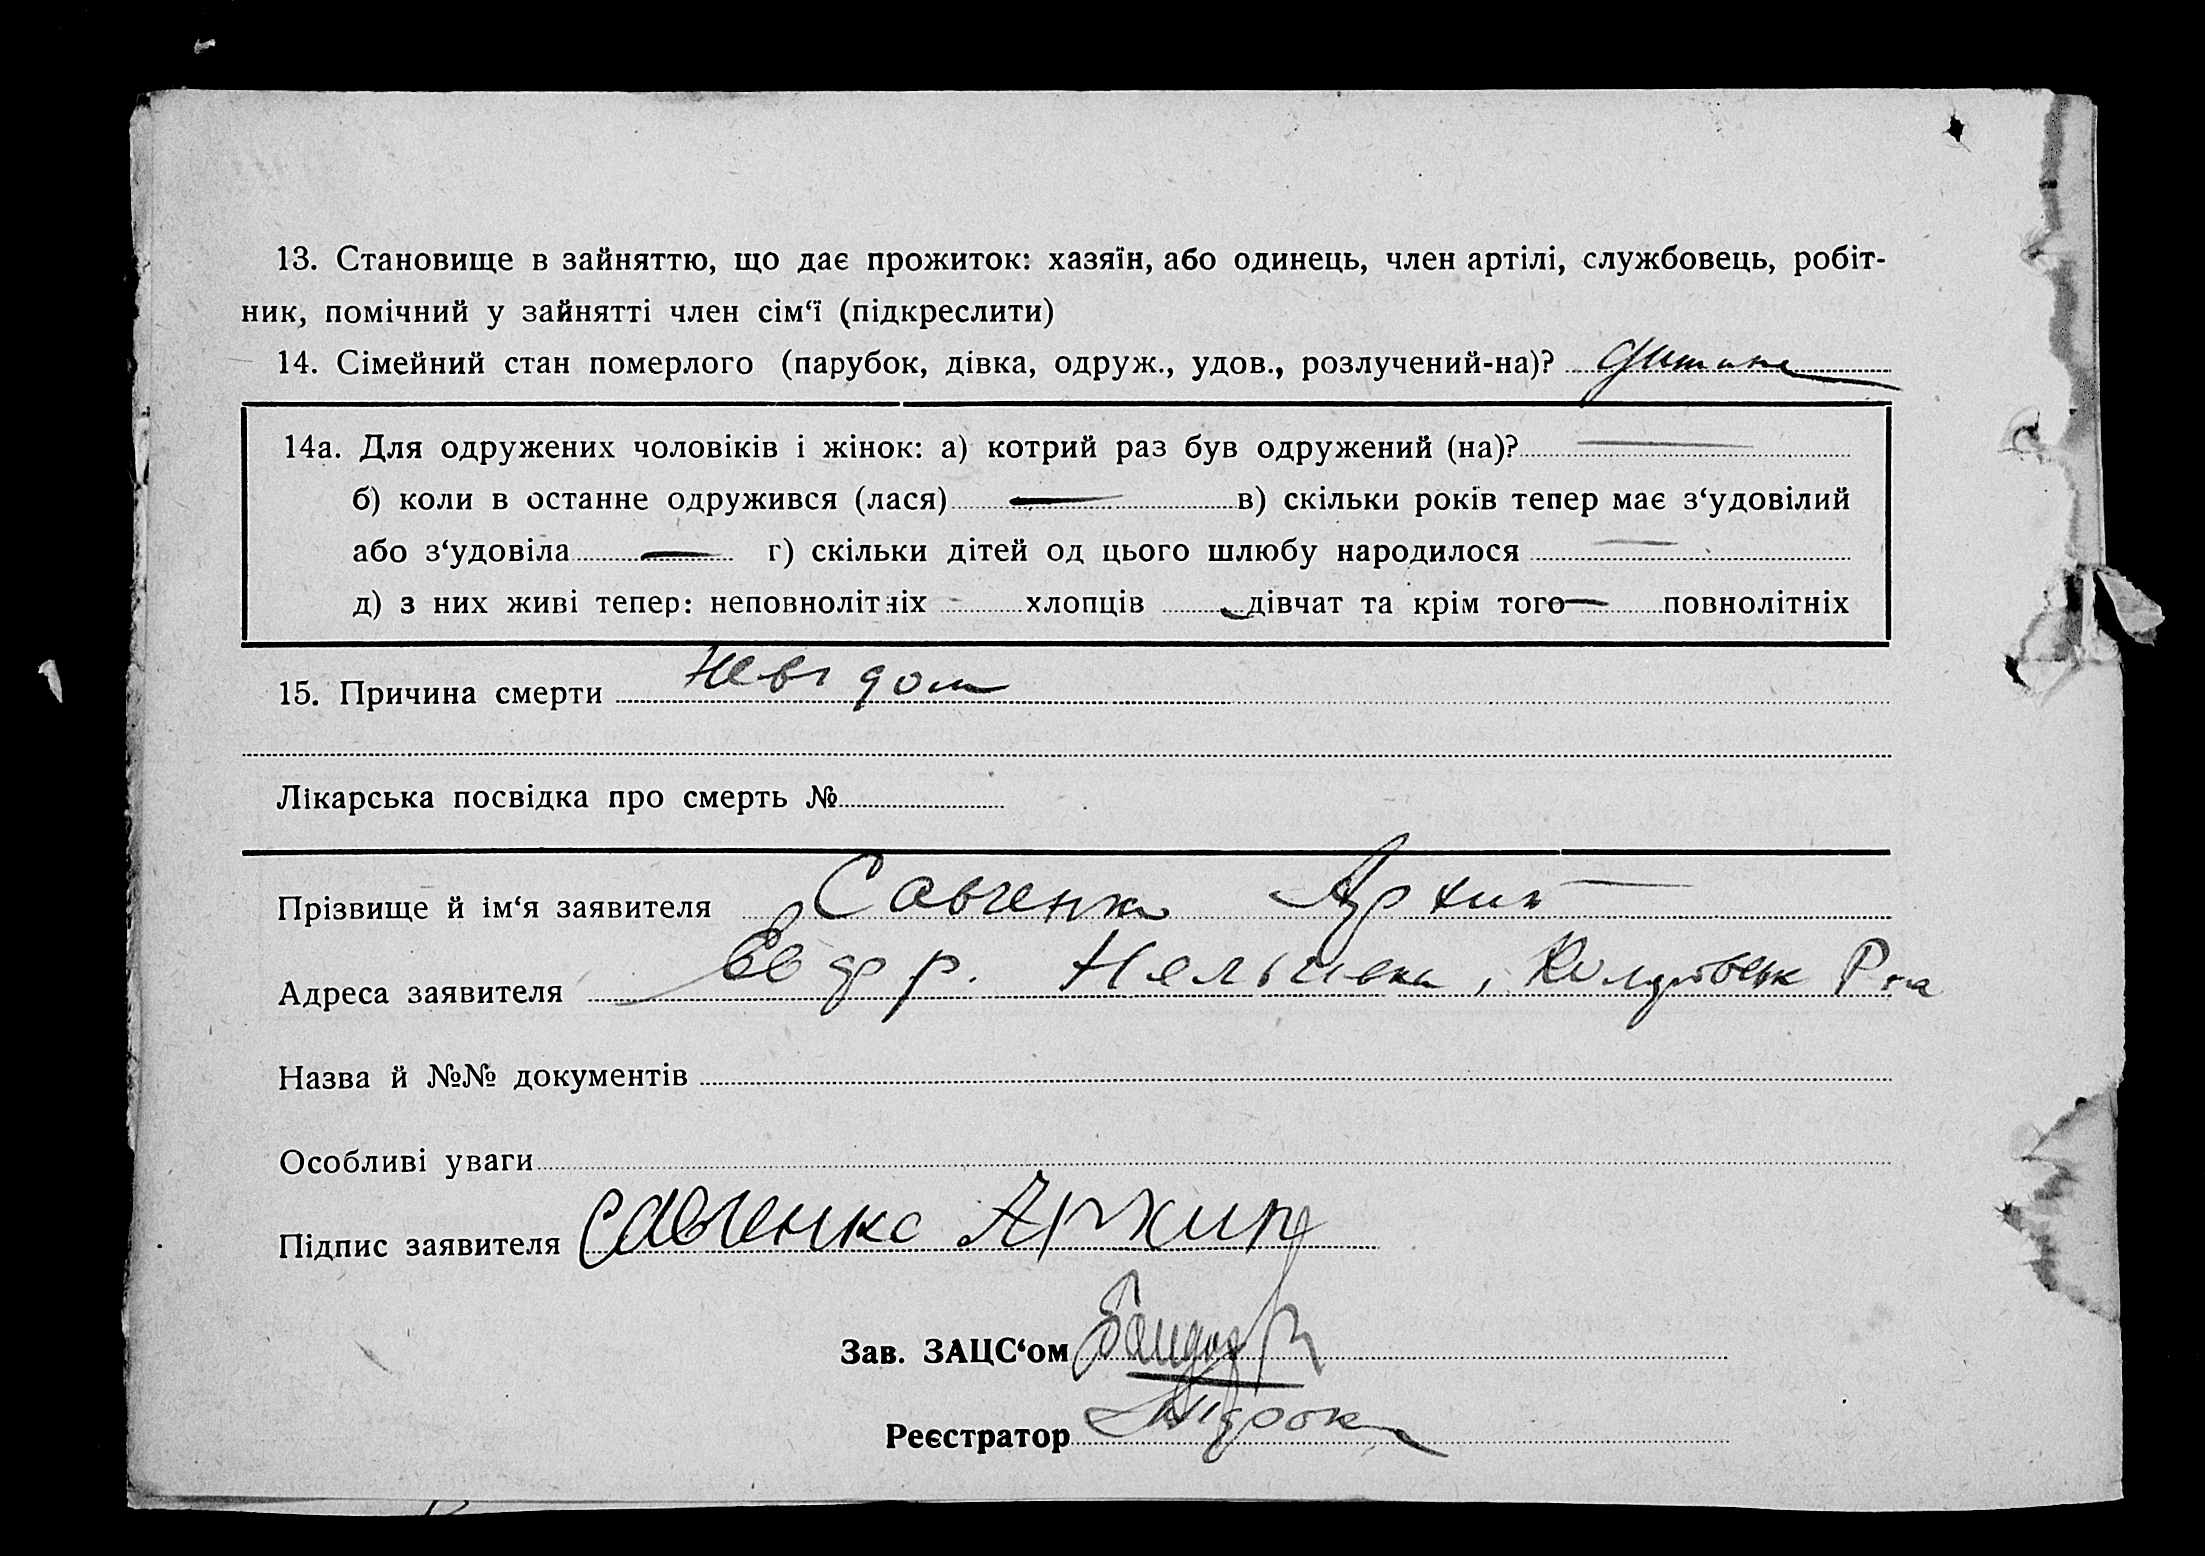 13. Становище в зайняттю, що дає прожиток: хазяїн, або одинець, член артілі, службовець, робіт-
ник, помічний у зайнятті член сім‘ї (підкреслити)
14. Сімейний стан померлого (парубок, дівка, одруж., удов., розлучений-на)? дитина
14а. Для одружених чоловіків і жінок: а) котрий раз був одружений (на)? —
б) коли в останнє одружився (лася) — в) скільки років тепер має з‘удовілий
або з‘удовіла — г) скільки дітей од цього шлюбу народилося —
д) з них живі тепер: неповнолітніх хлопців дівчат та крім того — повнолітніх
15. Причина смерти Невідом
Лікарська посвідка про смерть №
Прізвище й ім‘я заявителя Савченко Архип
Адреса заявителя
Назва й №№ документів
Особливі уваги
Підпис заявителя Савченко Архип
Зав. ЗАЦС‘ом
Реєстратор